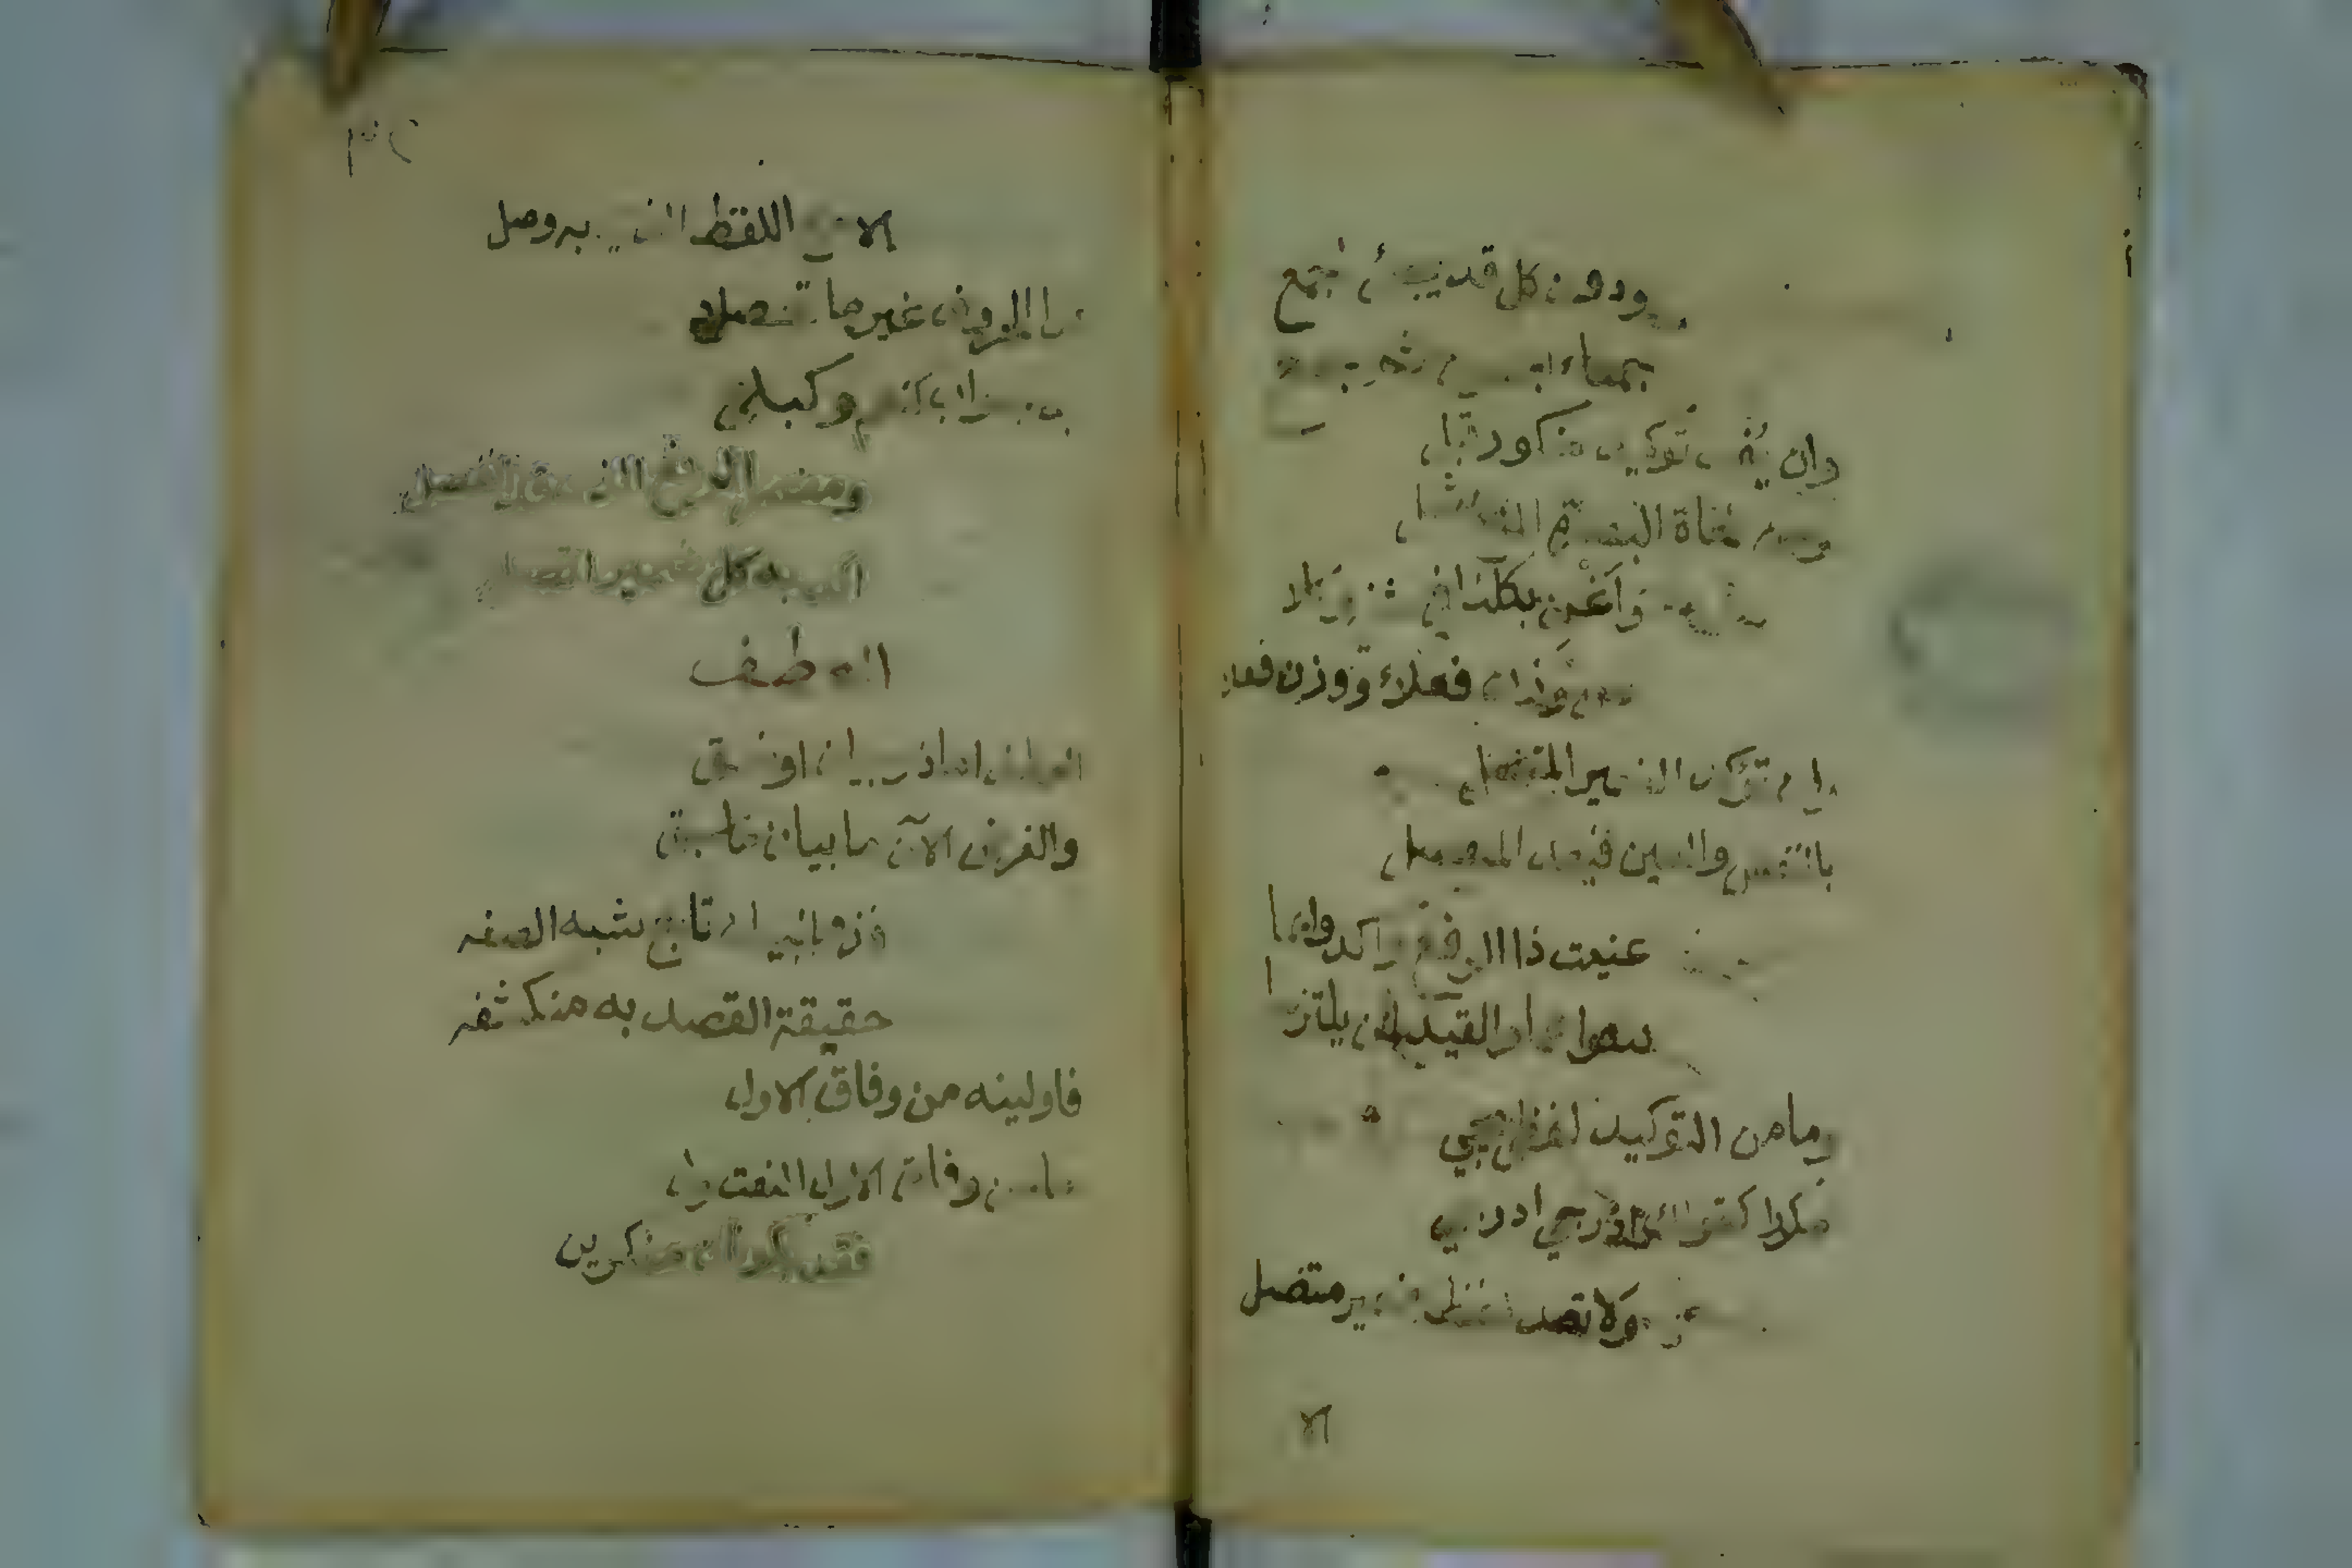 ودون كل قد يجيء أجمع
جمعاء
وان توكيد منكور قبل
نحاة البصرة المنع شمل
واغن بكلتا في مثنى وكلا
وزن فعلاء ووزن فعلا
وان تؤكد الضمير المتصل
بالنفس والعين فبعد المنفصل
عنيت ذا الرفع واكدوا بما
سواهما والقيد لن يلتزما
وما من التوكيد لفظي يجي
مكررا كقولك ادرجي ادرجي
ولا تعد لفظ ضمير متصل
الا
الا مع اللفظ الذي به وصل
كذا الحروف غير ما تحصلا
به جواب كنعم وكبلى
ومضمر الرفع الذي قد انفصل
اكد به كل ضمير اتصل
العطف
العطف اما ذو بيان او نسق
والغرض الآن بيان ما سبق
فذو البيان تابع شبه الصفه
حقيقة القصد به منكشفه
فاولينه من وفاق الاول
ما من وفاق الاول النعت ولي
فقد يكونان منكرين